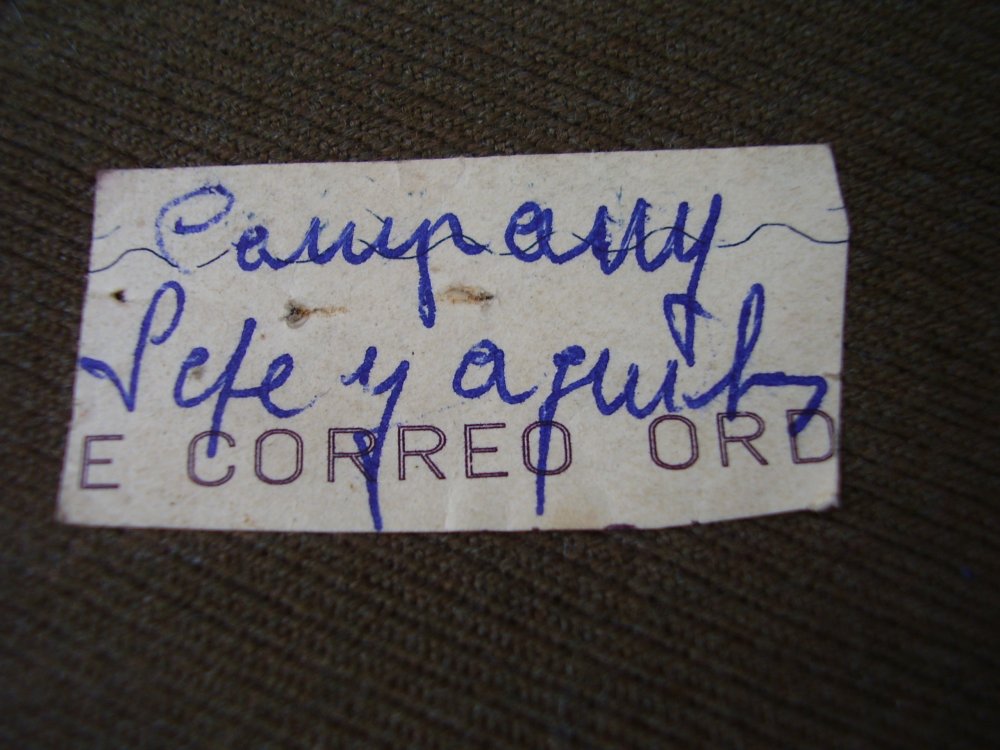 Company
Jefe y aguil
E CORREO ORD